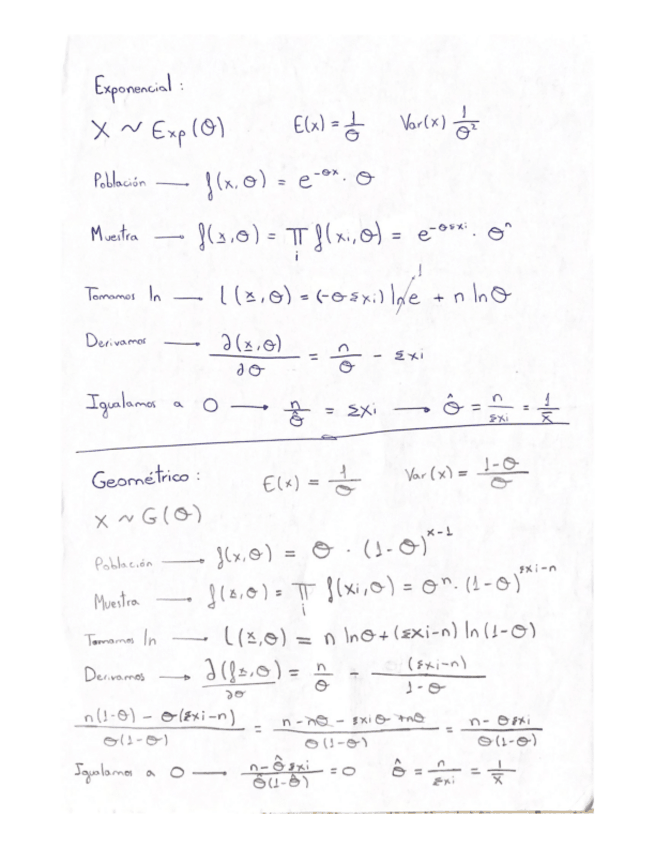 Exponencial :
X ~ Exp(θ) E(x) = 1/θ Var(x) 1/θ²
Población — f(x,θ) = e^(-θx) · θ
Muestra — f(x,θ) = ∏_i f(xi,θ) = e^(-θΣxi) · θ^n
Tomamos ln — l(x,θ) = (-θΣxi) ln e¹ + n lnθ
Derivamos → ∂(x,θ)/∂θ = n/θ - Σxi
Igualamos a 0 → n/θ̂ = Σxi → θ̂ = n/Σxi = 1/x̄
Geométrico : E(x) = 1/θ Var(x) = 1-θ/θ
X ~ G(θ)
Población → f(x,θ) = θ · (1-θ)^(x-1)
Muestra → f(x,θ) = ∏_i f(xi,θ) = θ^n · (1-θ)^(Σxi-n)
Tomamos ln → l(x,θ) = n lnθ + (Σxi-n) ln(1-θ)
Derivamos → ∂(f x,θ)/∂θ = n/θ - (Σxi-n)/1-θ
n(1-θ) - θ(Σxi-n)/θ(1-θ) = n-nθ-Σxiθ+nθ/θ(1-θ) = n-θΣxi/θ(1-θ)
Igualamos a 0 — n-θ̂Σxi/θ̂(1-θ̂) = 0 θ̂ = n/Σxi = 1/x̄